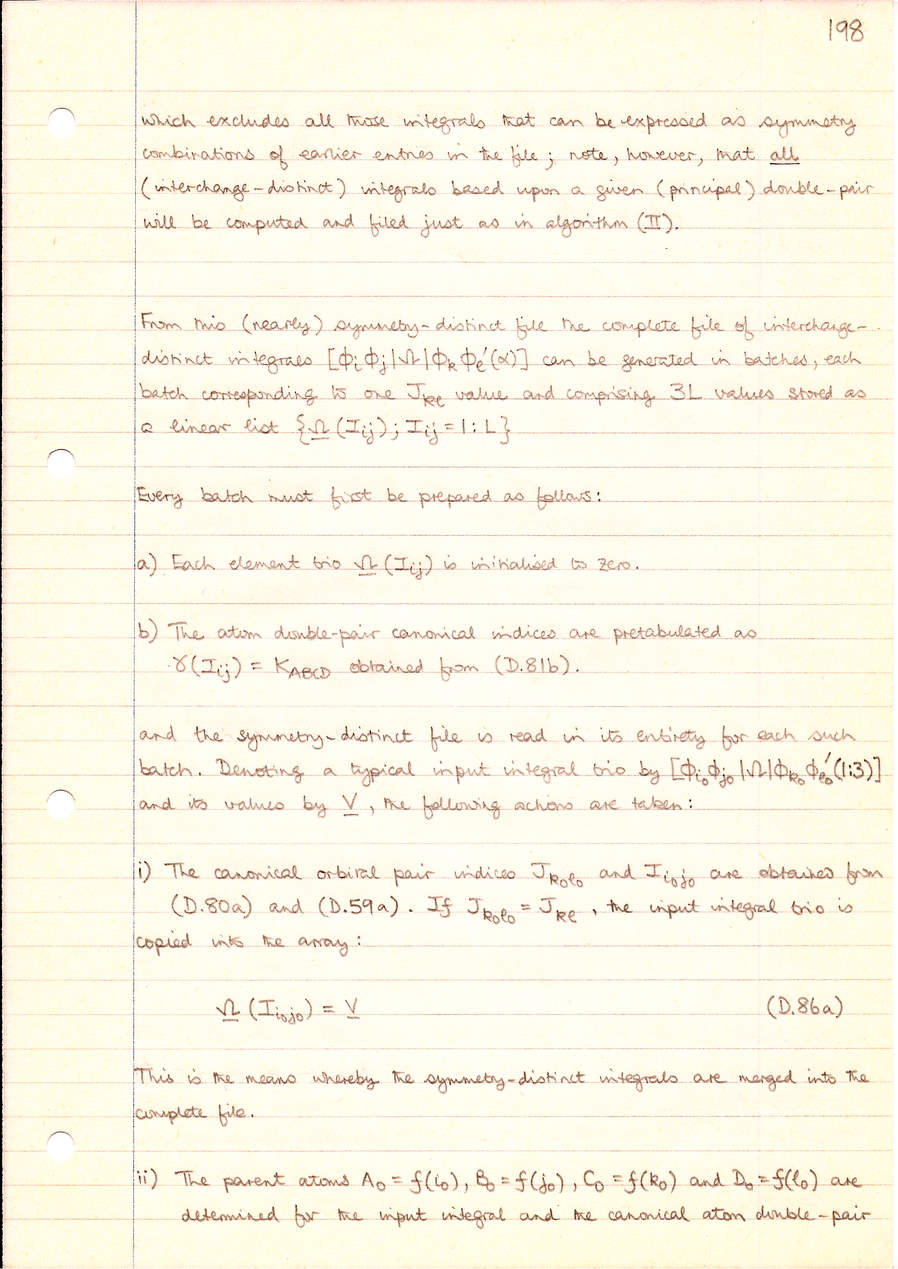 198
which excludes all those integrals that can be expressed as symmetry
combinations of earlier entries in the file; note, however, that all
(interchange-distinct) integrals based upon a given (principal) double-pair
will be computed and filed just as in algorithm (II).
From this (nearly) symmetry-distinct file the complete file of interchange-
distinct integrals [ϕᵢϕⱼ|Ω|ϕₖϕₗ′(α)] can be generated in batches, each
batch corresponding to one Jₖₗ value and comprising 3L values stored as
a linear list {Ω(Iᵢⱼ); Iᵢⱼ = 1:L}
Every batch must first be prepared as follows:
a) Each element trio Ω(Iᵢⱼ) is initialised to zero.
b) The atom double-pair canonical indices are pretabulated as
γ(Iᵢⱼ) = K_ABCD obtained from (D.81b).
and the symmetry-distinct file is read in its entirety for each such
batch. Denoting a typical input integral trio by [ϕᵢ₀ϕⱼ₀|Ω|ϕₖ₀ϕₗ₀′(1:3)]
and its values by V, the following actions are taken:
i) The canonical orbital pair indices Jₖ₀ₗ₀ and Iᵢ₀ⱼ₀ are obtained from
(D.80a) and (D.59a). If Jₖ₀ₗ₀ = Jₖₗ, the input integral trio is
copied into the array:
Ω(Iᵢ₀ⱼ₀) = V (D.86a)
This is the means whereby the symmetry-distinct integrals are merged into the
complete file.
ii) The parent atoms A₀ = f(i₀), B₀ = f(j₀), C₀ = f(k₀) and D₀ = f(l₀) are
determined for the input integral and the canonical atom double-pair